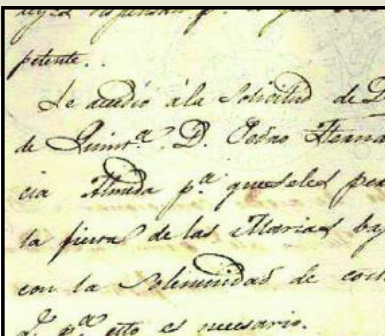 petente..
Se acedio ála Solicitud de D
de Quint.ª D. Pedro Herna
cia Almeida p.ª que seles per
la fiesta de las Marias baj
con la Solemnidad de cos
q.e p.ª esto es necesario.